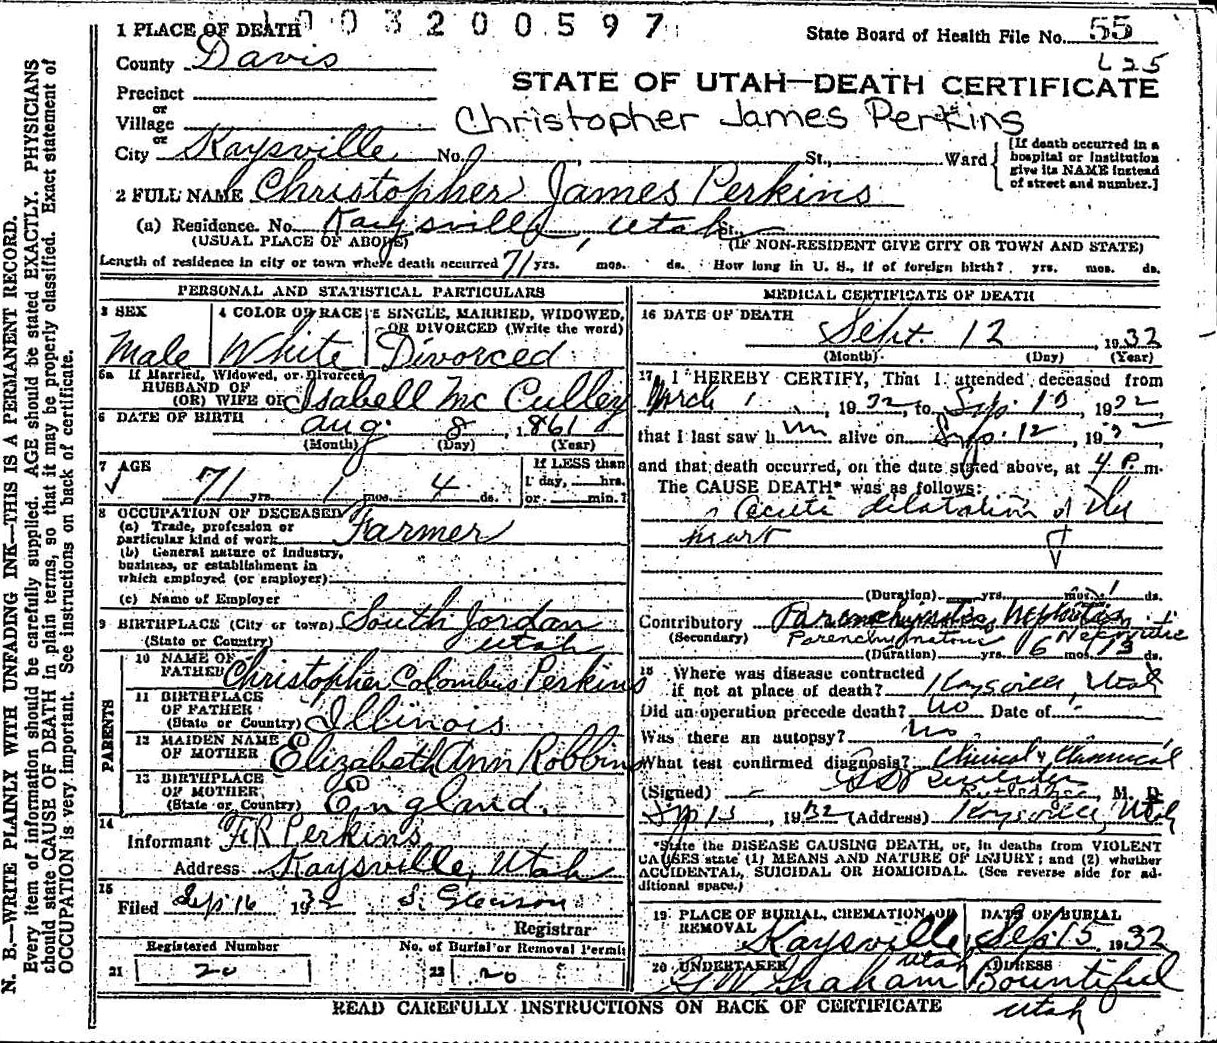 1003200597
1 PLACE OF DEATH
State Board of Health File No. 55
County Davis
L25
STATE OF UTAH—DEATH CERTIFICATE
Precinct
or
Village
Christopher James Perkins
or
City Kaysville No. St., Ward
[If death occurred in a hospital or institution give its NAME instead of street and number.]
2 FULL NAME Christopher James Perkins
(a) Residence. No. Kaysville, Utah St.
(USUAL PLACE OF ABODE) (IF NON-RESIDENT GIVE CITY OR TOWN AND STATE)
Length of residence in city or town where death occurred 71 yrs. mos. ds. How long in U. S., if of foreign birth? yrs. mos. ds.
PERSONAL AND STATISTICAL PARTICULARS
3 SEX 4 COLOR OR RACE 5 SINGLE, MARRIED, WIDOWED, OR DIVORCED (Write the word)
Male White Divorced
5a If Married, Widowed, or Divorced
HUSBAND OF
(OR) WIFE OF Isabell Mc Culley
6 DATE OF BIRTH Aug 8, 1861
(Month) (Day) (Year)
7 AGE
71 yrs. 1 mos. 4 ds.
If LESS than
1 day, hrs.
or min.?
8 OCCUPATION OF DECEASED
(a) Trade, profession or
particular kind of work Farmer
(b) General nature of industry,
business, or establishment in
which employed (or employer)
(c) Name of Employer
9 BIRTHPLACE (City or town) South Jordan
(State or Country) Utah
PARENTS
10 NAME OF
FATHER Christopher Colombus Perkins
11 BIRTHPLACE
OF FATHER
(State or Country) Illinois
12 MAIDEN NAME
OF MOTHER Elizabeth Ann Robbins
13 BIRTHPLACE
OF MOTHER
(State or Country) England.
14
Informant F R Perkins
Address Kaysville, Utah
15
Filed Sep 16 1932 S. Gleason
Registrar
Registered Number No. of Burial or Removal Permit
21 20 22 20
MEDICAL CERTIFICATE OF DEATH
16 DATE OF DEATH
Sept. 12 1932
(Month) (Day) (Year)
17 I HEREBY CERTIFY, That I attended deceased from
March 1, 1932, to Sep. 12 1932
that I last saw him alive on Sep. 12, 1932
and that death occurred, on the date stated above, at 4 P. m.
The CAUSE DEATH* was as follows:
Acute dilatation of the
heart
(Duration) yrs. mos. 1 ds.
Contributory Parenchymatous Nephritis
(Secondary) Parenchymatous Nephritis
(Duration) yrs. 6 mos. 13 ds.
18 Where was disease contracted
if not at place of death? Kaysville, Utah
Did an operation precede death? no Date of
Was there an autopsy? No
What test confirmed diagnosis? Clinical & Chemical
(Signed) Rutledge, M. D.
Sep 15, 1932 (Address) Kaysville, Utah
*State the DISEASE CAUSING DEATH, or, in deaths from VIOLENT
CAUSES state (1) MEANS AND NATURE OF INJURY; and (2) whether
ACCIDENTAL, SUICIDAL OR HOMICIDAL. (See reverse side for ad-
ditional space.)
19 PLACE OF BURIAL, CREMATION, OR REMOVAL DATE OF BURIAL
Kaysville Utah Sep 15 1932
20 UNDERTAKER ADDRESS
Graham Bountiful
Utah
READ CAREFULLY INSTRUCTIONS ON BACK OF CERTIFICATE
N. B.—WRITE PLAINLY WITH UNFADING INK—THIS IS A PERMANENT RECORD.
Every item of information should be carefully supplied. AGE should be stated EXACTLY. PHYSICIANS
should state CAUSE OF DEATH in plain terms, so that it may be properly classified. Exact statement of
OCCUPATION is very important. See instructions on back of certificate.